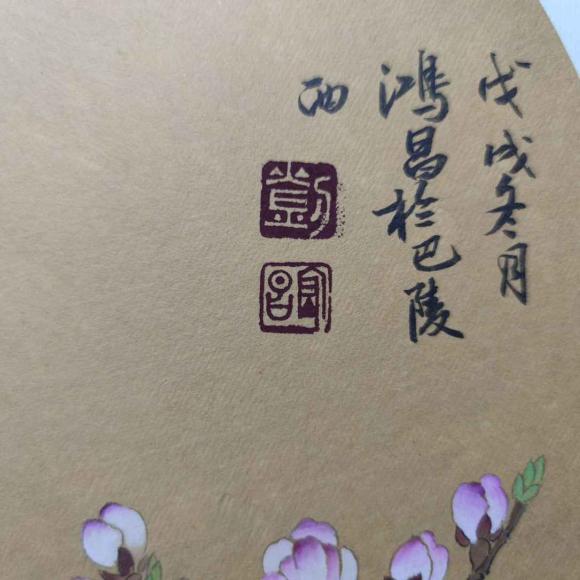 戊戌冬月
鸿昌於巴陵
画